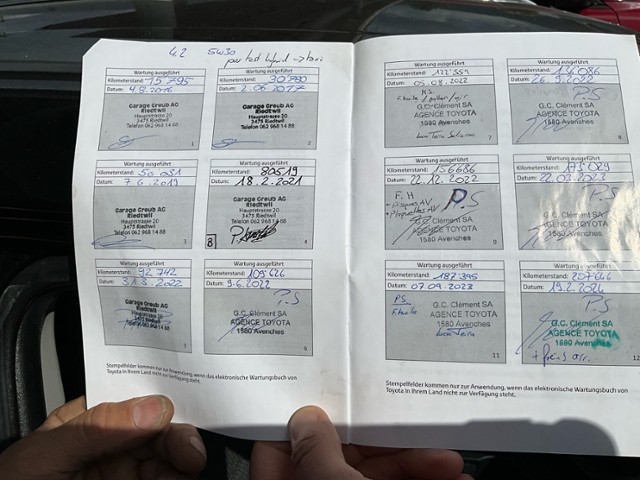 4.2 5W30
Wartung ausgeführt
Kilometerstand: 15 795
Datum: 4.8.2016
Garage Greub AG
Riedtwil
Hauptstrasse 20
3475 Riedtwil
Telefon 062 968 14 88
1
Wartung ausgeführt
Kilometerstand: 30 990
Datum: 2.06.2017
Garage Greub AG
Riedtwil
Hauptstrasse 20
3475 Riedtwil
Telefon 062 968 14 88
2
Wartung ausgeführt
Kilometerstand: 50 081
Datum: 7.6.2019
Garage Greub AG
Riedtwil
Hauptstrasse 20
3475 Riedtwil
Telefon 062 968 14 88
3
Wartung ausgeführt
Kilometerstand: 80519
Datum: 18.2.2021
Garage Greub AG
Riedtwil
Hauptstrasse 20
3475 Riedtwil
Telefon 062 968 14 88
8
4
Wartung ausgeführt
Kilometerstand: 92 742
Datum: 31.3.2022
Garage Greub AG
Riedtwil
Hauptstrasse 20
3475 Riedtwil
Telefon 062 968 14 88
5
Wartung ausgeführt
Kilometerstand: 105 626
Datum: 9.6.2022
P.S
G.C. Clément SA
AGENCE TOYOTA
1580 Avenches
6
Stempelfelder kommen nur zur Anwendung, wenn das elektronische Wartungsbuch von
Toyota in Ihrem Land nicht zur Verfügung steht.
Wartung ausgeführt
Kilometerstand: 122 559
Datum: 05.08.2022
G.C. Clément SA
AGENCE TOYOTA
1580 Avenches
7
Wartung ausgeführt
Kilometerstand:
Datum: 26.9.2022
P.S
G.C. Clément SA
AGENCE TOYOTA
1580 Avenches
8
Wartung ausgeführt
Kilometerstand: 156686
Datum: 22.12.2022
F.H P.S
+ Plaquettes AV
G.C. Clément SA
AGENCE TOYOTA
1580 Avenches
9
Wartung ausgeführt
Kilometerstand: 173029
Datum: 22.03.2023
P.S
G.C. Clément SA
AGENCE TOYOTA
1580 Avenches
Wartung ausgeführt
Kilometerstand: 187 395
Datum: 07.09.2023
P.S
G.C. Clément SA
AGENCE TOYOTA
1580 Avenches
11
Wartung ausgeführt
Kilometerstand: 207 666
Datum: 19.2.2024
P.S
G.C. Clément SA
AGENCE TOYOTA
1580 Avenches
12
Stempelfelder kommen nur zur Anwendung, wenn das elektronische Wartungsbuch von
Toyota in Ihrem Land nicht zur Verfügung steht.